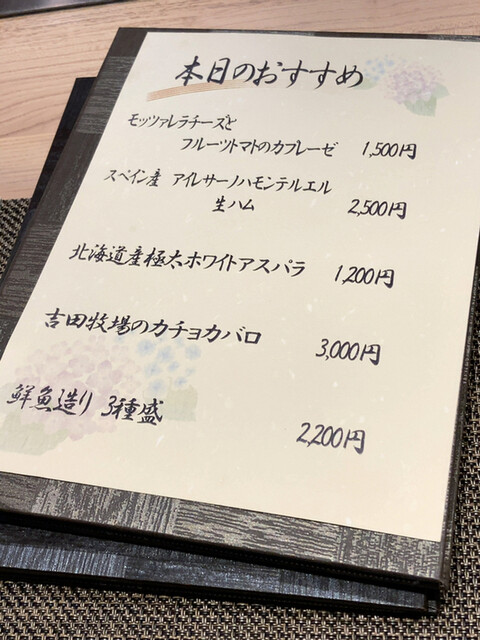 本日のおすすめ
モッツァレラチーズと
フルーツトマトのカプレーゼ 1,500円
スペイン産 アイレサーノハモンテルエル
生ハム 2,500円
北海道産極太ホワイトアスパラ 1,200円
吉田牧場のカチョカバロ 3,000円
鮮魚造り 3種盛 2,200円